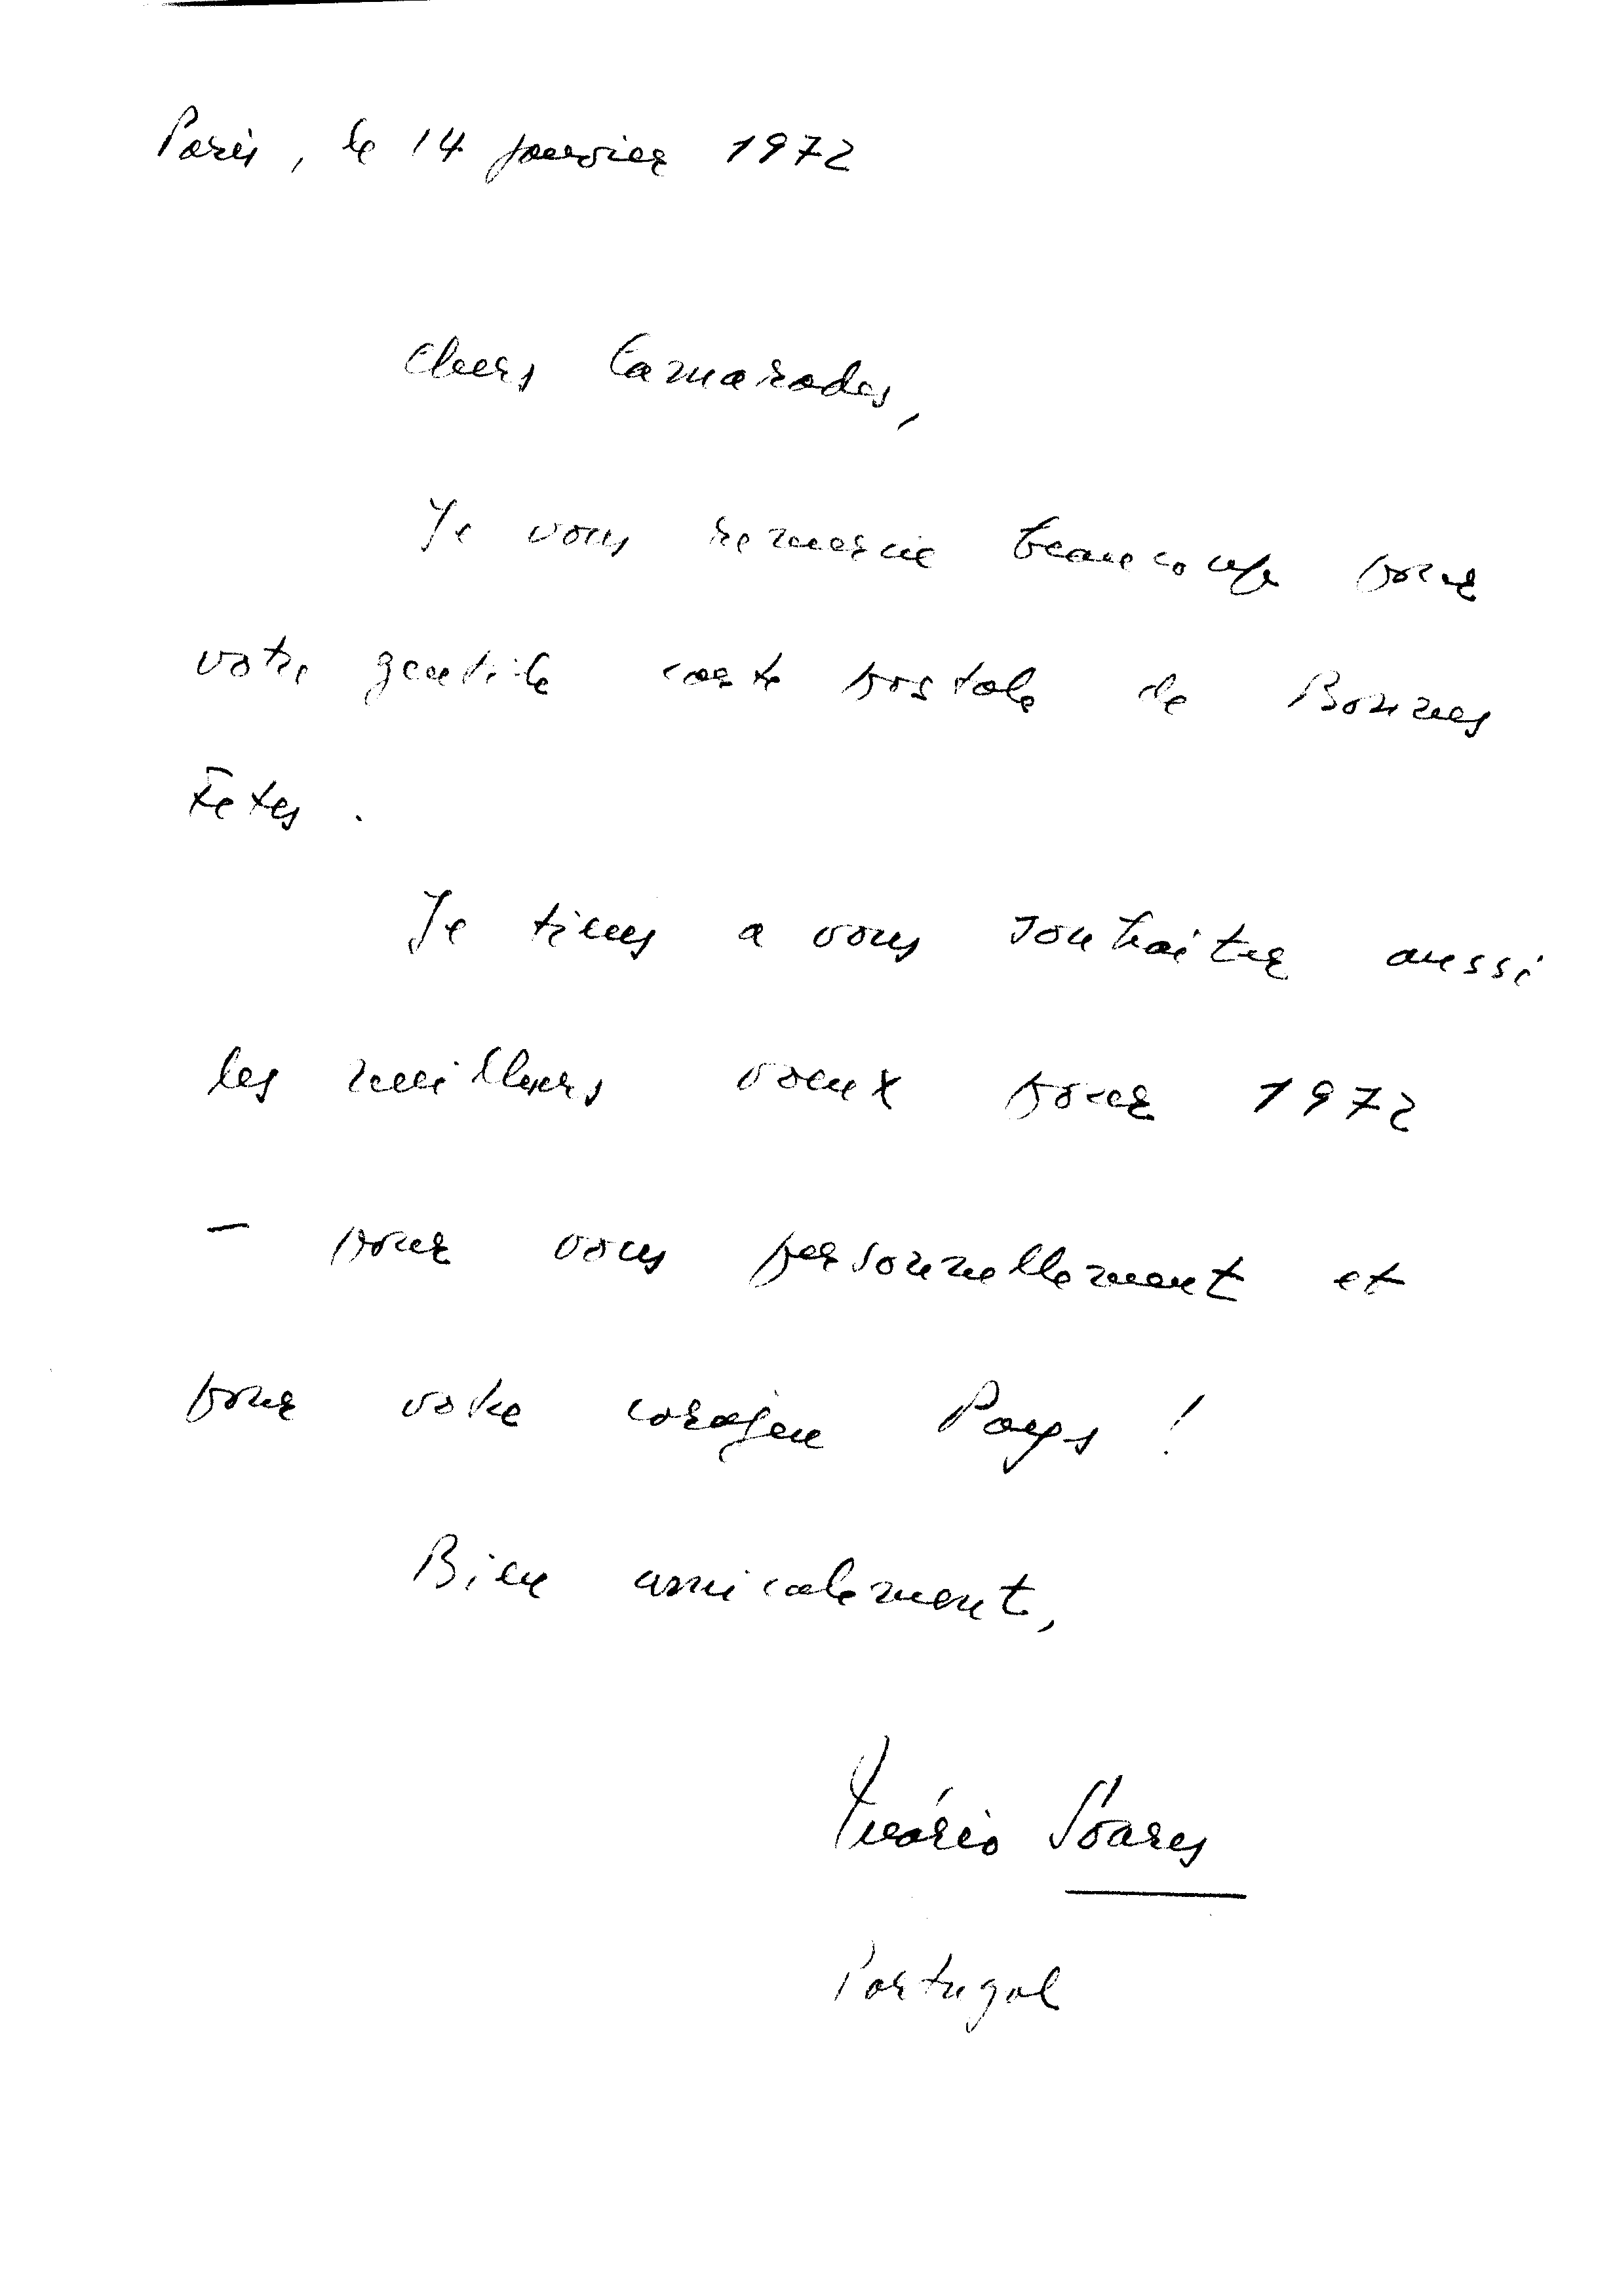 Paris, le 14 janvier 1972
Chers Camarades,
Je vous remercie beaucoup pour
votre gentile carte postale de Bonnes
Fêtes.
Je tiens a vous souhaiter aussi
les meilleurs voeux pour 1972
— pour vous personnellement et
pour votre Pays!
Bien amicalement,
Mário Soares
Portugal